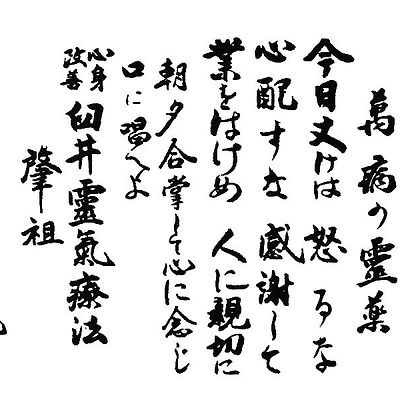 萬病の霊薬
今日丈けは 怒るな
心配すな 感謝して
業をはけめ 人に親切に
朝夕合掌して心に念じ
口に唱へよ
心身
改善
臼井靈氣療法
肇祖